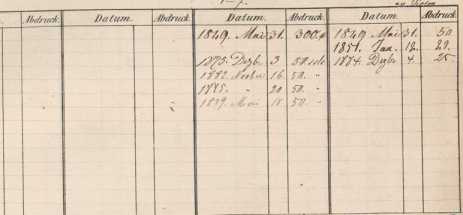 Abdruck. Datum. Abdruck. Datum. Abdruck. Datum. Abdruck.
1849. Mai 31. 300. 1849. Mai 31. 50
1851. Jan. 12. 29.
1875. Dezb. 3 50 1874. Dezb. 4. 25
1882. 16 50. "
1885. " 20 50. "
1889. Mai 18 50. "